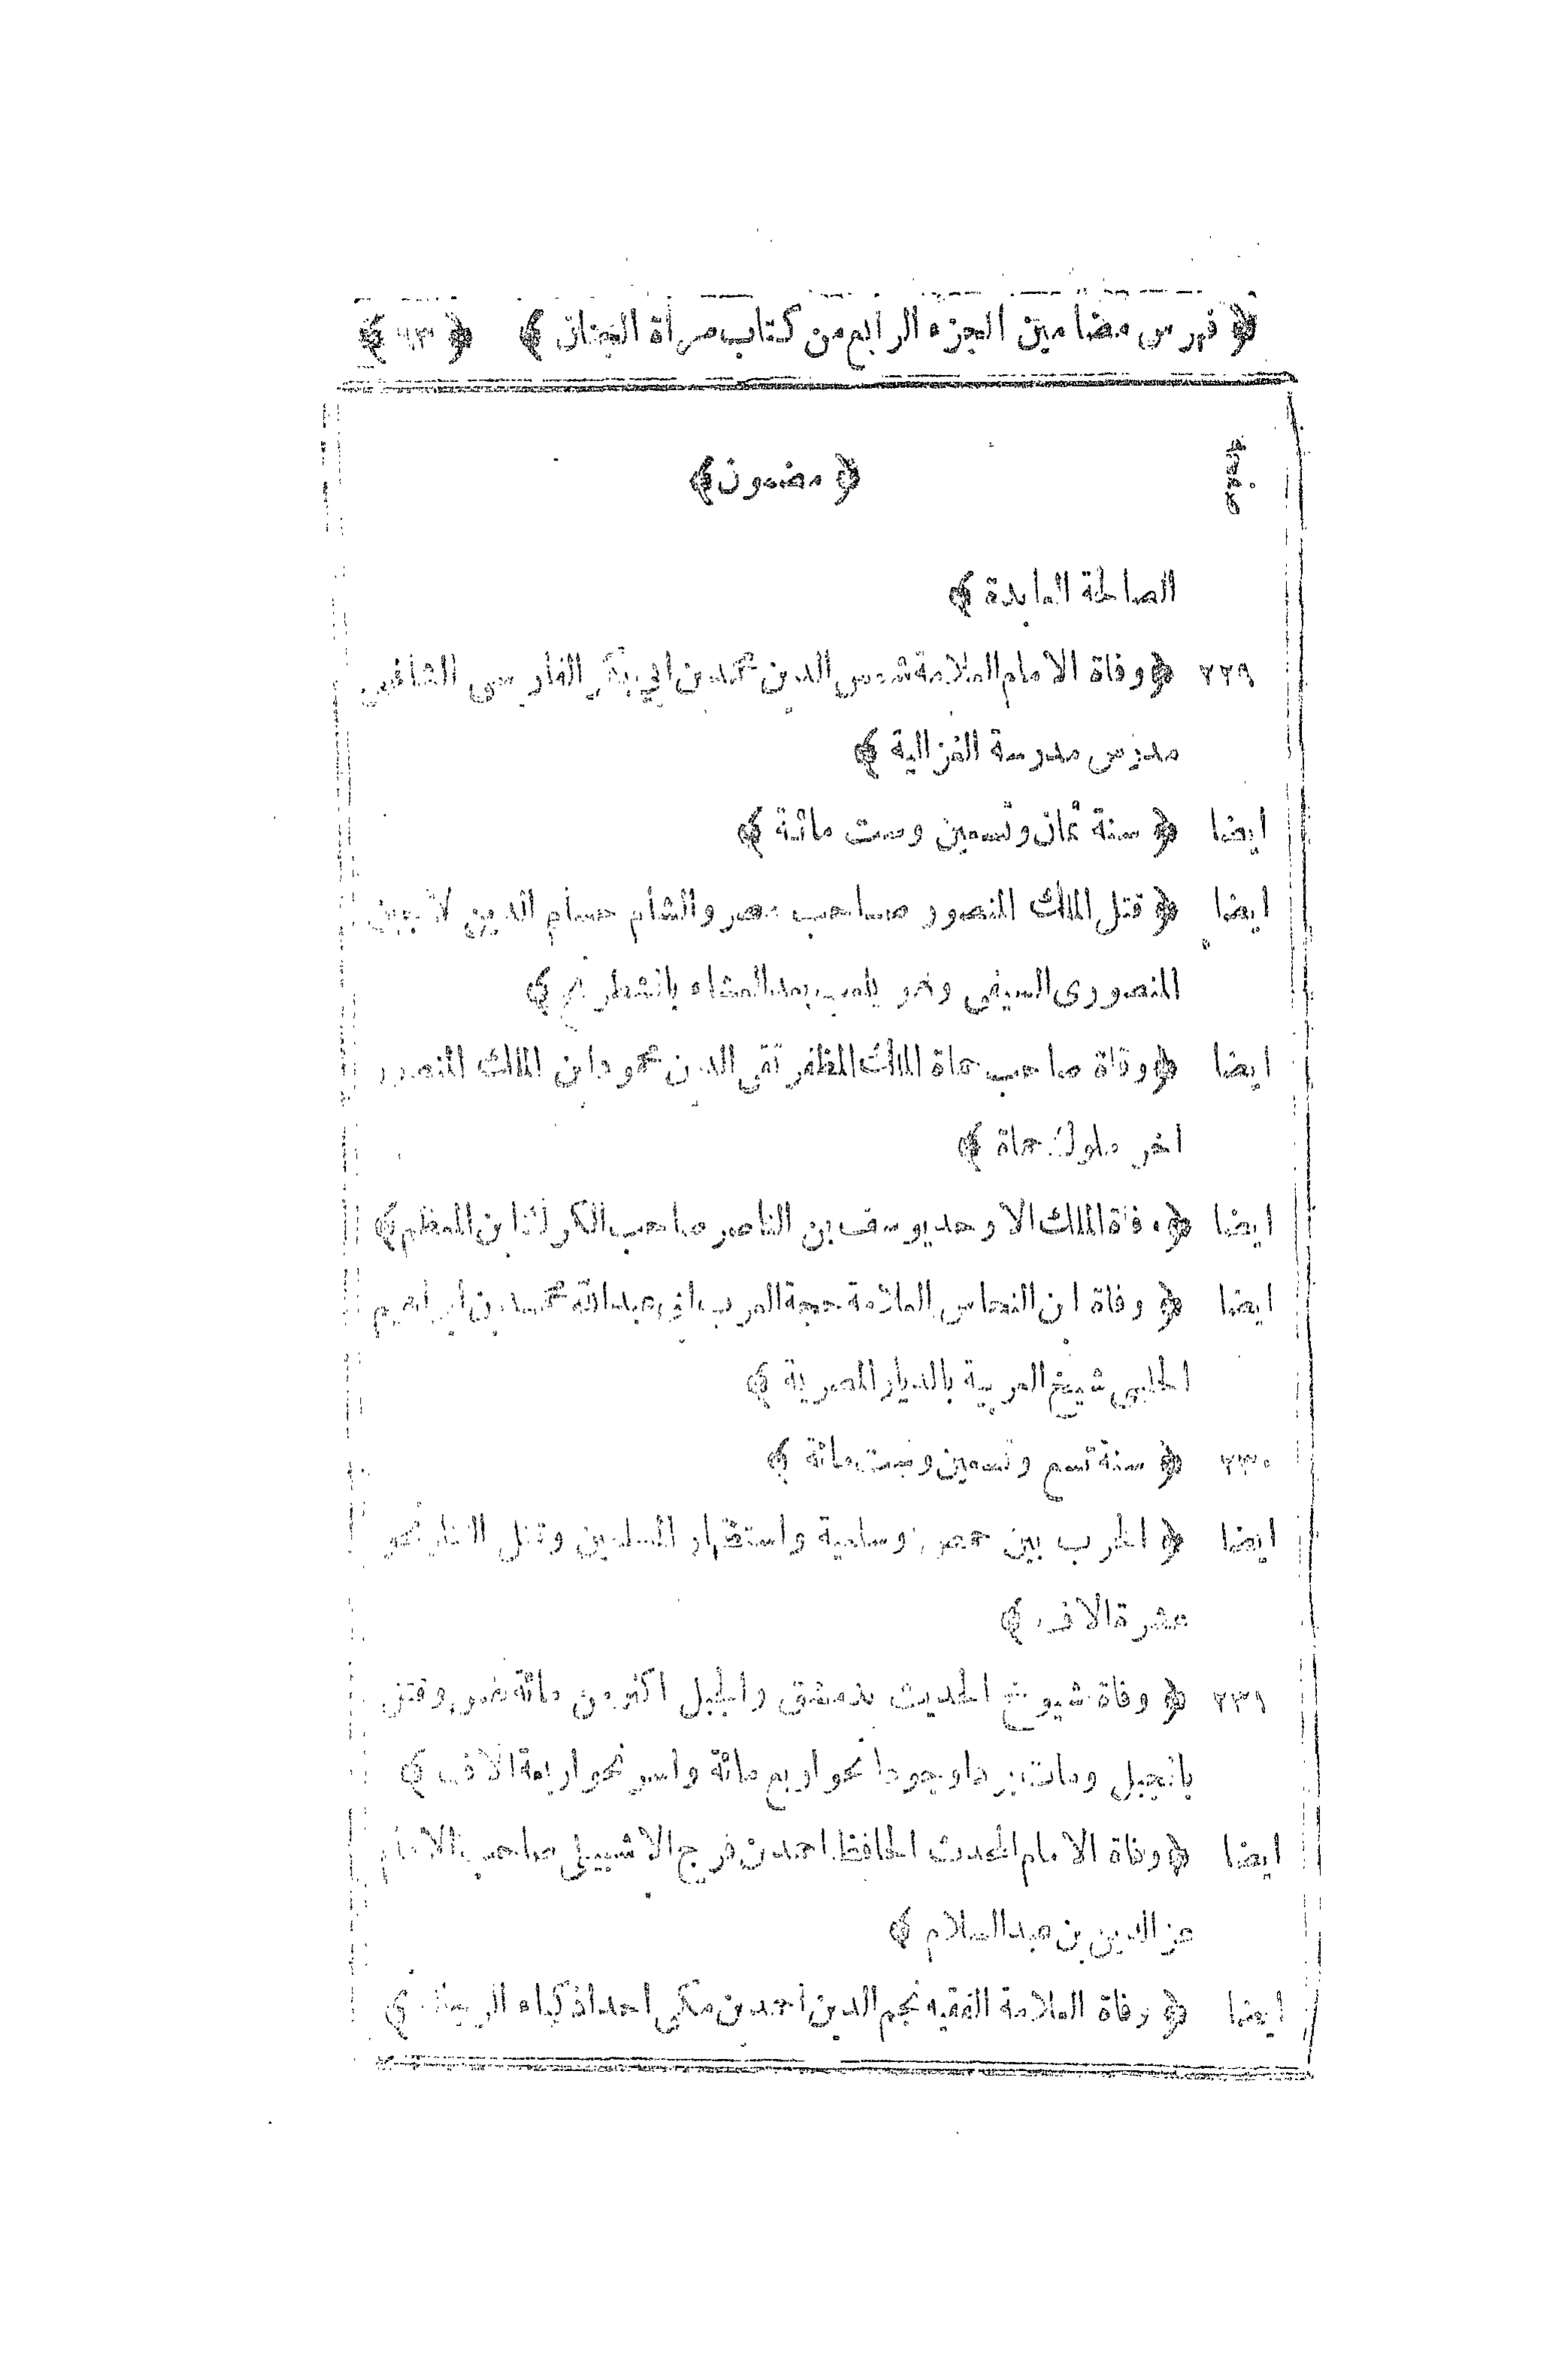 ﴿ فهرس مضامين الجزء الرابع من كتاب مرأة الجنان ﴾ ﴿ ٦٣ ﴾
صفحه ﴿ مضمون ﴾
الصالحة العابدة ﴾
٢٢٩ ﴿ وفاة الامام العلامة شمس الدين محمد بن ابي بكر الفارسى الشافعي
مدرس مدرسة الغزالية ﴾
ايضا ﴿ سنة ثمان وتسعين وست مائة ﴾
ايضا ﴿ قتل الملك المنصور صاحب مصر والشأم حسام الدين لاجين
المنصورى السيفي وهو يلعب بعد العشاء بالشطرنج ﴾
ايضا ﴿ وفاة صاحب حماة الملك المظفر تقى الدين محمود ابن الملك المنصور
اخر ملوك حماة ﴾
ايضا ﴿ وفاة الملك الاوحد يوسف بن الناصر صاحب الكرك ابن المعظم ﴾
ايضا ﴿ وفاة ابن النحاس العلامة حجة العرب ابى عبد الله محمد بن ابراهيم
الحلبي شيخ العربية بالديار المصرية ﴾
٢٣٠ ﴿ سنة تسع وتسعين وست مائة ﴾
ايضا ﴿ الحرب بين حمص وسلمية واستظهار المسلمين وقتل التتار نحو
عشرة الاف ﴾
٢٣١ ﴿ وفاة شيوخ الحديث بدمشق والجبل اكثر من مائة نفس وقتل
بالجبل ومات بردا وجوعا نحو اربع مائة واسر نحو اربعة الاف ﴾
ايضا ﴿ وفاة الامام المحدث الحافظ احمد بن فرج الاشبيلى صاحب الامام
عز الدين بن عبد السلام ﴾
ايضا ﴿ وفاة العلامة الفقيه نجم الدين احمد بن مكي احد اذكياء ﴾